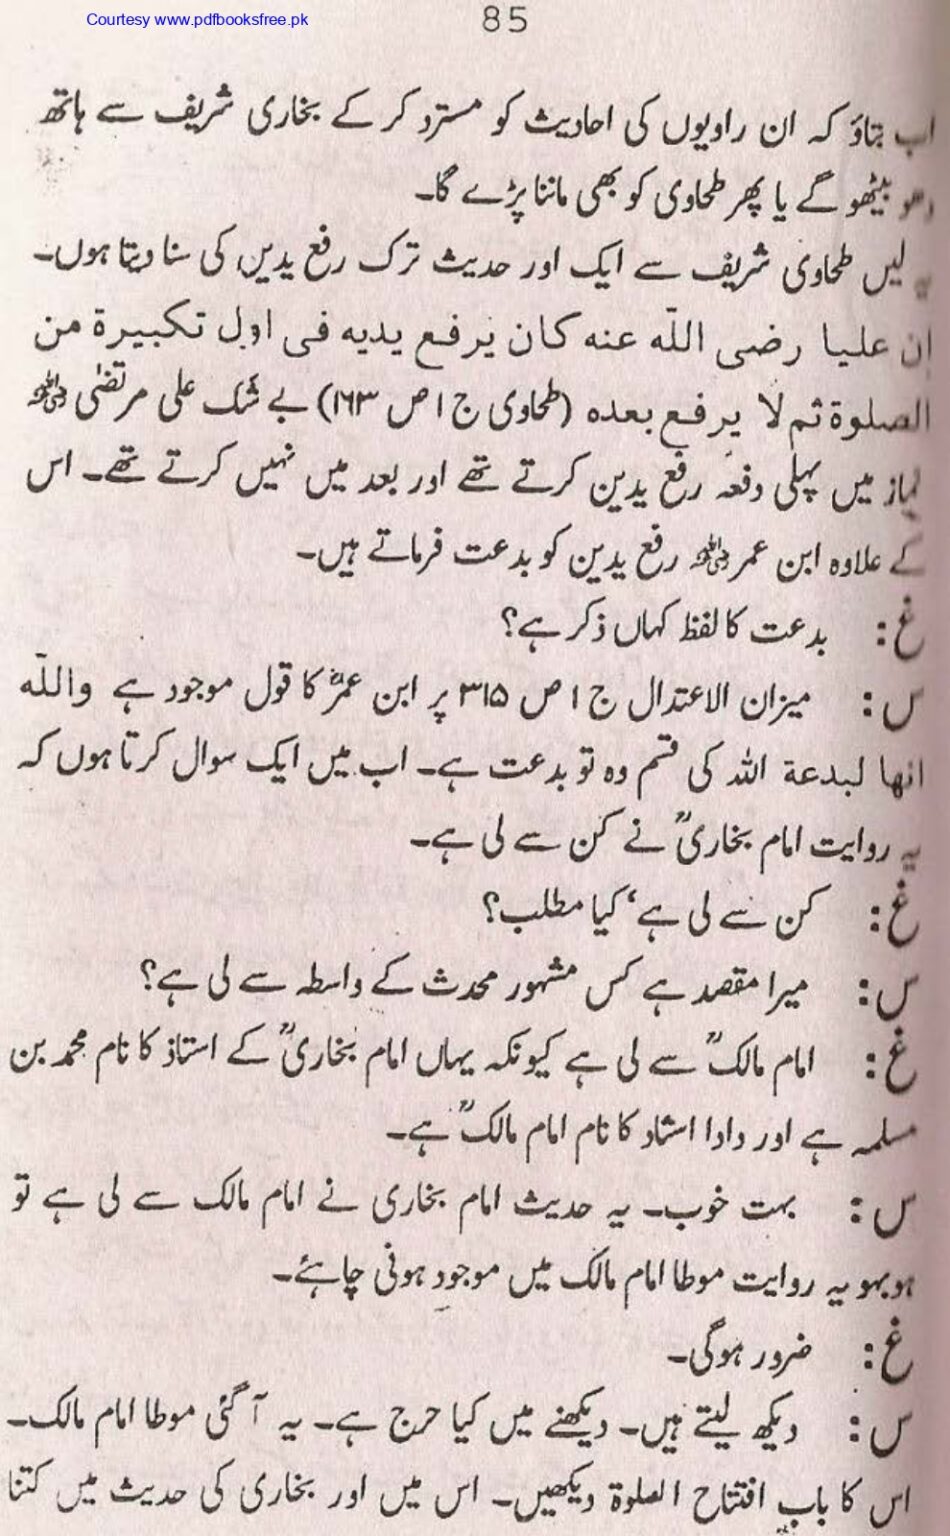 Courtesy www.pdfbooksfree.pk
85
اب بتاؤ کہ ان راویوں کی احادیث کو مسترد کر کے بخاری شریف سے ہاتھ
دھو بیٹھو گے یا پھر طحاوی کو بھی ماننا پڑے گا۔
یہ لیں طحاوی شریف سے ایک اور حدیث ترک رفع یدین کی سنا دیتا ہوں۔
ان علیا رضی اللّٰہ عنہ کان یرفع یدیہ فی اول تکبیرۃ من
الصلوۃ ثم لا یرفع بعدہ (طحاوی ج ۱ ص ۱۶۳) بے شک علی مرتضیٰ رضی اللہ عنہ
نماز میں پہلی دفعہ رفع یدین کرتے تھے اور بعد میں نہیں کرتے تھے۔ اس
کے علاوہ ابن عمر رضی اللہ عنہ رفع یدین کو بدعت فرماتے ہیں۔
غ : بدعت کا لفظ کہاں ذکر ہے؟
س : میزان الاعتدال ج ۱ ص ۳۱۵ پر ابن عمرؓ کا قول موجود ہے واللّٰہ
انھا لبدعة اللہ کی قسم وہ تو بدعت ہے۔ اب میں ایک سوال کرتا ہوں کہ
یہ روایت امام بخاریؒ نے کن سے لی ہے۔
غ : کن سے لی ہے، کیا مطلب؟
س : میرا مقصد ہے کس مشہور محدث کے واسطہ سے لی ہے؟
غ : امام مالکؒ سے لی ہے کیونکہ یہاں امام بخاریؒ کے استاذ کا نام محمد بن
مسلمہ ہے اور دادا استاد کا نام امام مالکؒ ہے۔
س : بہت خوب۔ یہ حدیث امام بخاری نے امام مالک سے لی ہے تو
ہوبہو یہ روایت موطا امام مالک میں موجود ہونی چاہئے۔
غ : ضرور ہوگی۔
س : دیکھ لیتے ہیں۔ دیکھنے میں کیا حرج ہے۔ یہ آگئی موطا امام مالک۔
اس کا باب افتتاح الصلوۃ دیکھیں۔ اس میں اور بخاری کی حدیث میں کتنا